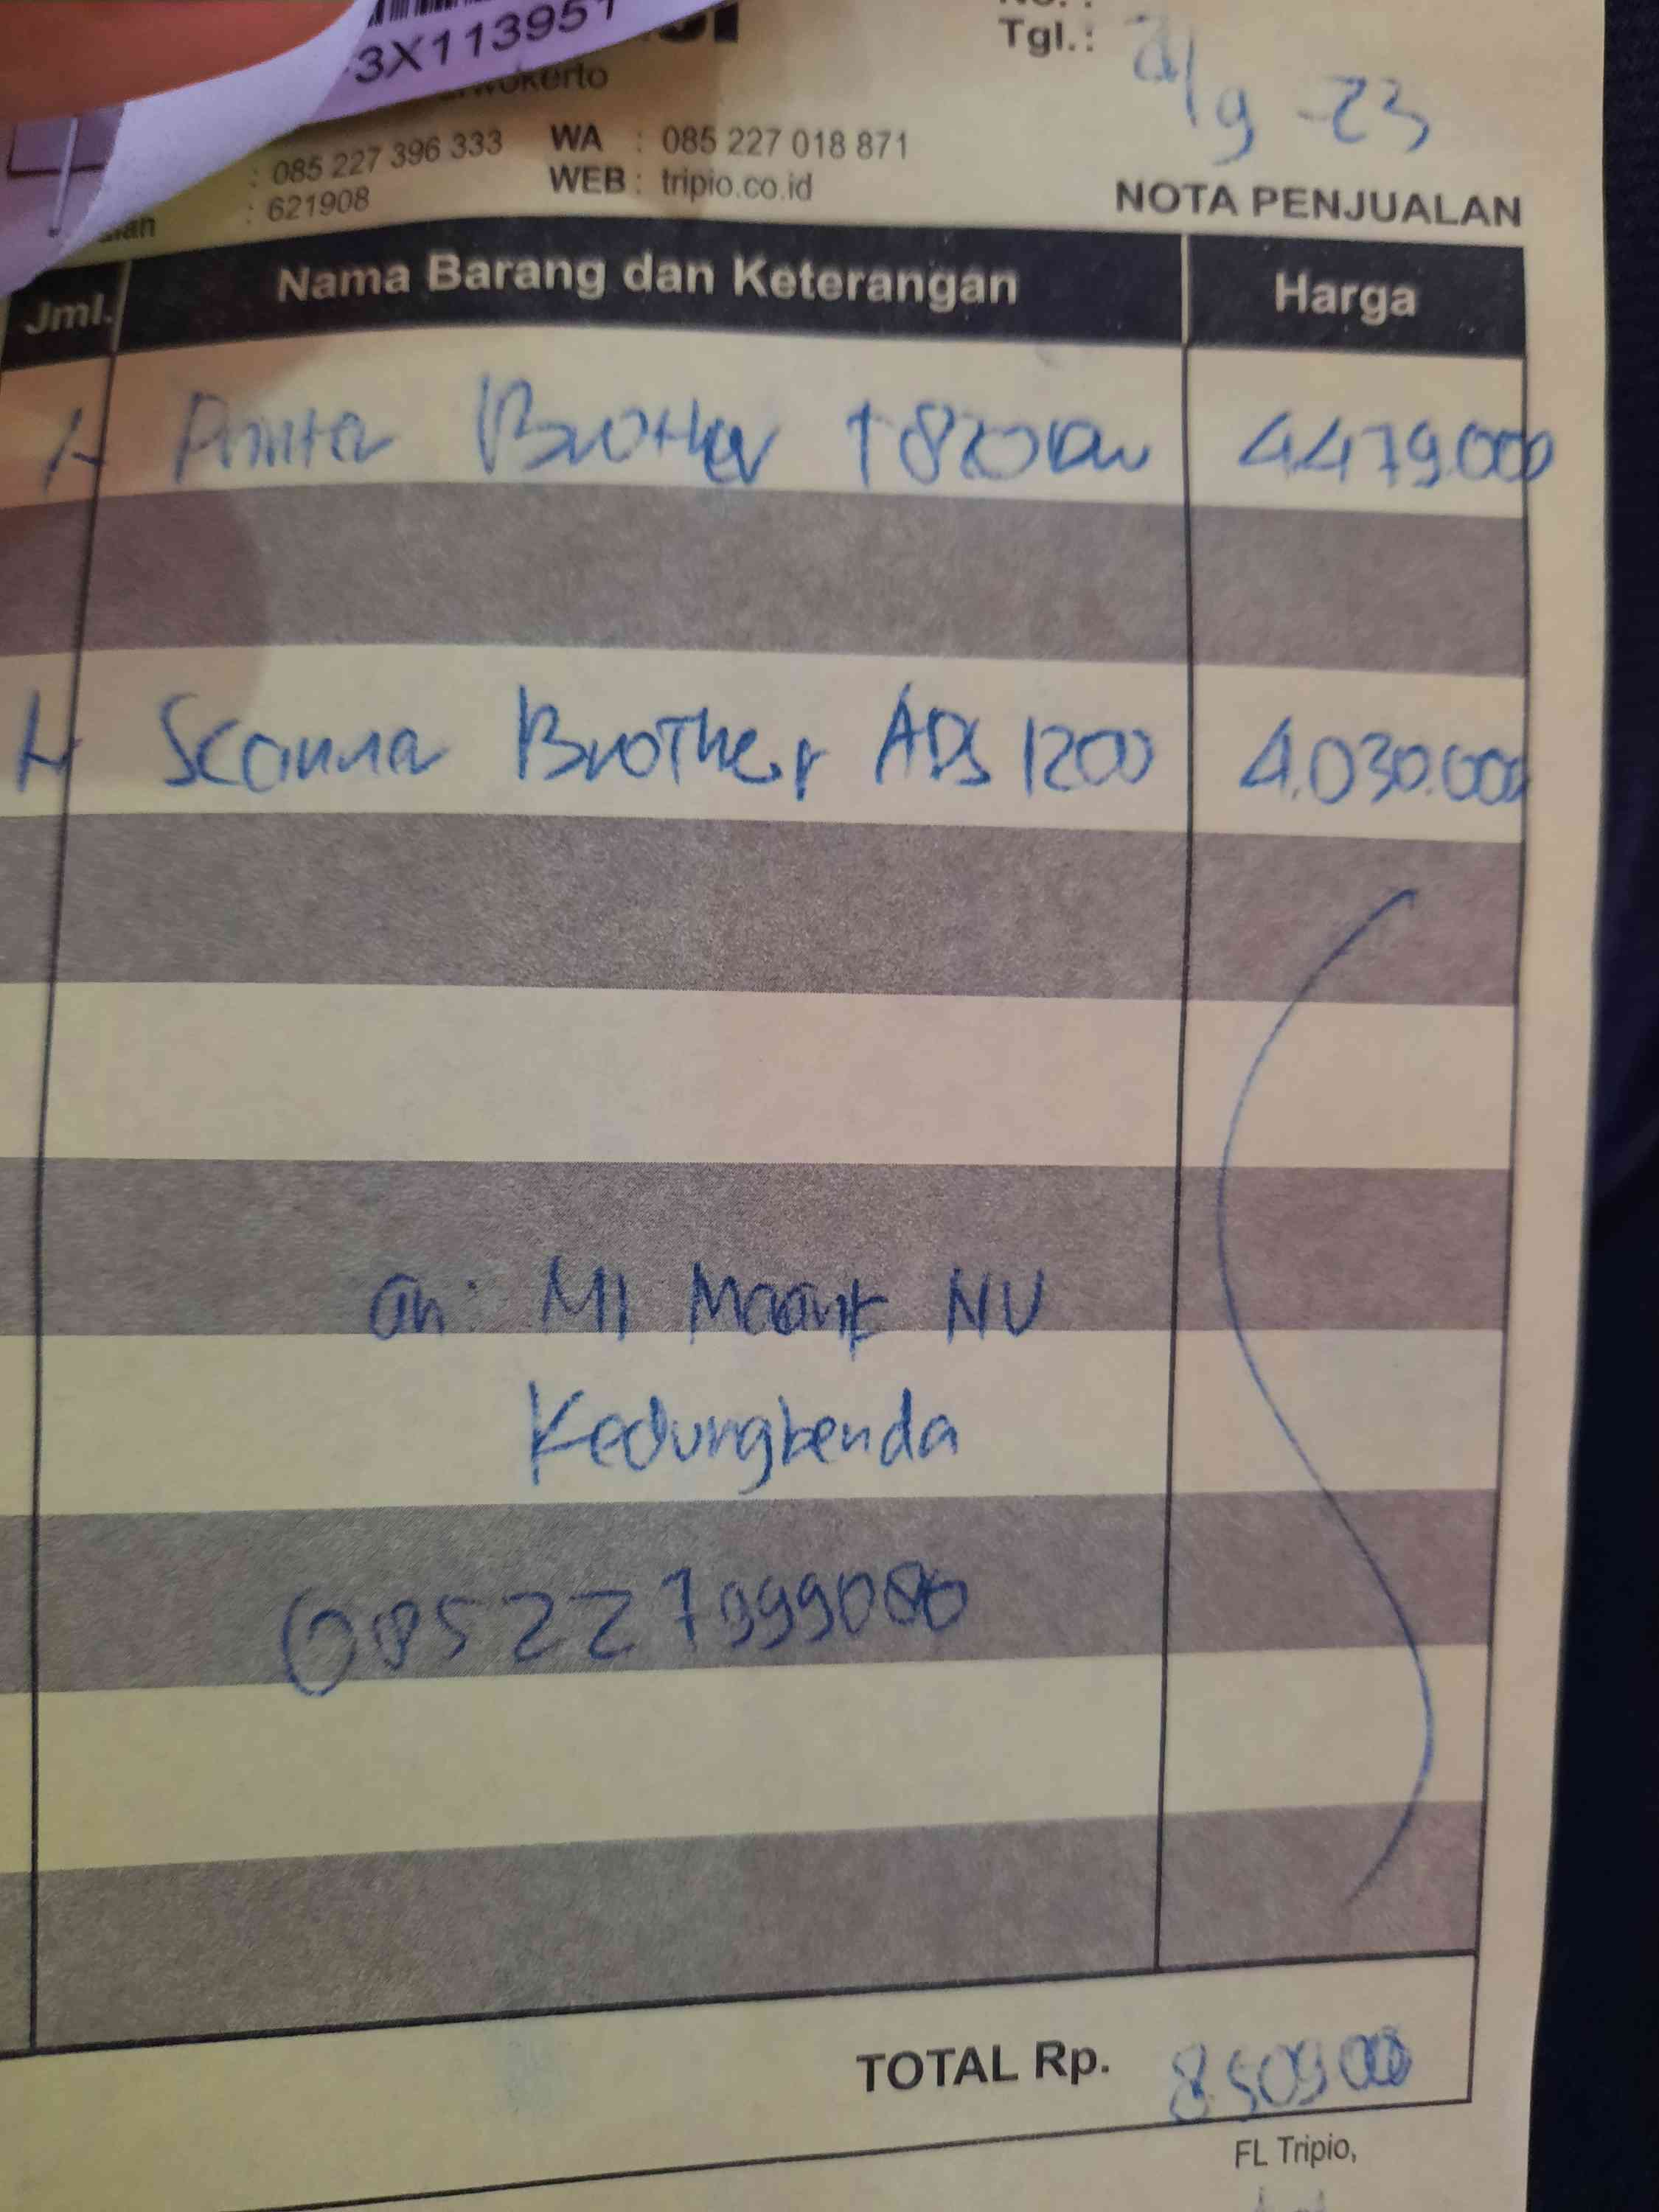 3X113951
Tgl.: 21/9-23
085 227 396 333 WA : 085 227 018 871
: 621908 WEB : tripio.co.id
NOTA PENJUALAN
Jml. Nama Barang dan Keterangan Harga
1 Printer Brother T820Dw 4.479.000
1 Scanner Brother ADS 1200 4.030.000
an: MI Maarif NU
Kedungbenda
TOTAL Rp. 8.509.000
FL Tripio,